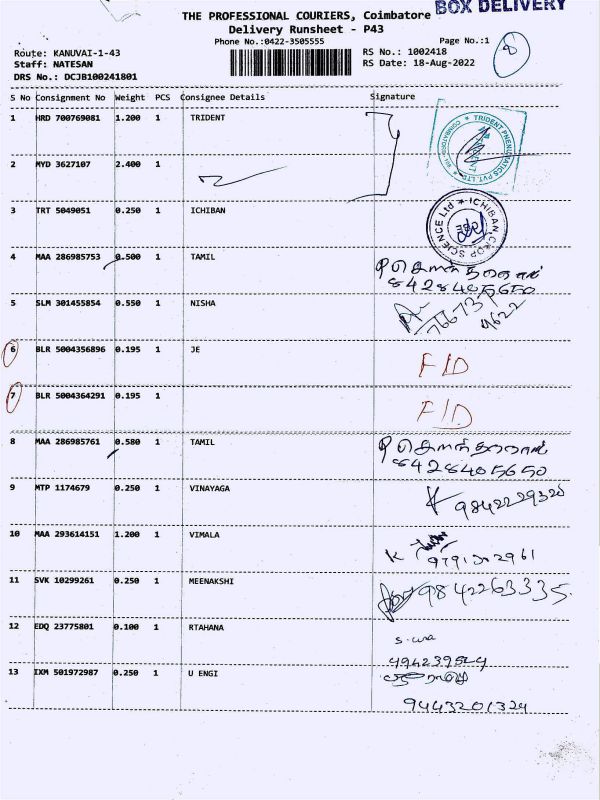 BOX DELIVERY
THE PROFESSIONAL COURIERS, Coimbatore
Delivery Runsheet - P43
Phone No.:0422-3505555
Page No.:1
8
Route: KANUVAI-1-43
RS No.: 1002418
Staff: NATESAN
RS Date: 18-Aug-2022
DRS No.: DCJB100241801
S No Consignment No Weight PCS Consignee Details Signature
1 HRD 700769081 1.200 1 TRIDENT
TRIDENT PNEUMATICS PVT. LTD
2 MYD 3627107 2.400 1
3 TRT 5049051 0.250 1 ICHIBAN
ICHIBAN CROP SCIENCE Ltd
4 MAA 286985753 0.500 1 TAMIL
8428405650
5 SLM 301455854 0.550 1 NISHA
6 BLR 5004356896 0.195 1 JE F/D
7 BLR 5004364291 0.195 1 F/D
8 MAA 286985761 0.580 1 TAMIL
8428405650
9 MTP 1174679 0.250 1 VINAYAGA
9842229320
10 MAA 293614151 1.200 1 VIMALA
K
9791302961
11 SVK 10299261 0.250 1 MEENAKSHI 9842263335
12 EDQ 23775801 0.100 1 RTAHANA
13 IXM 501972987 0.250 1 U ENGI
9443201324